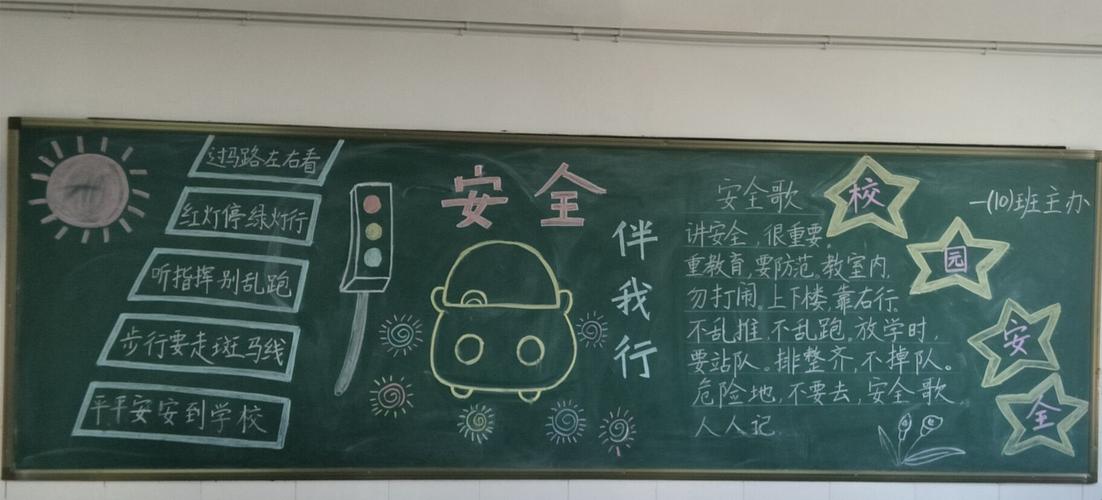 过马路左右看
红灯停绿灯行
听指挥别乱跑
步行要走斑马线
平平安安到学校
安全
伴我行
安全歌
讲安全，很重要。
重教育，要防范。教室内，
勿打闹。上下楼，靠右行。
不乱推，不乱跑。放学时，
要站队。排整齐，不掉队。
危险地，不要去，安全歌，
人人记.
校园安全
一(10)班主办